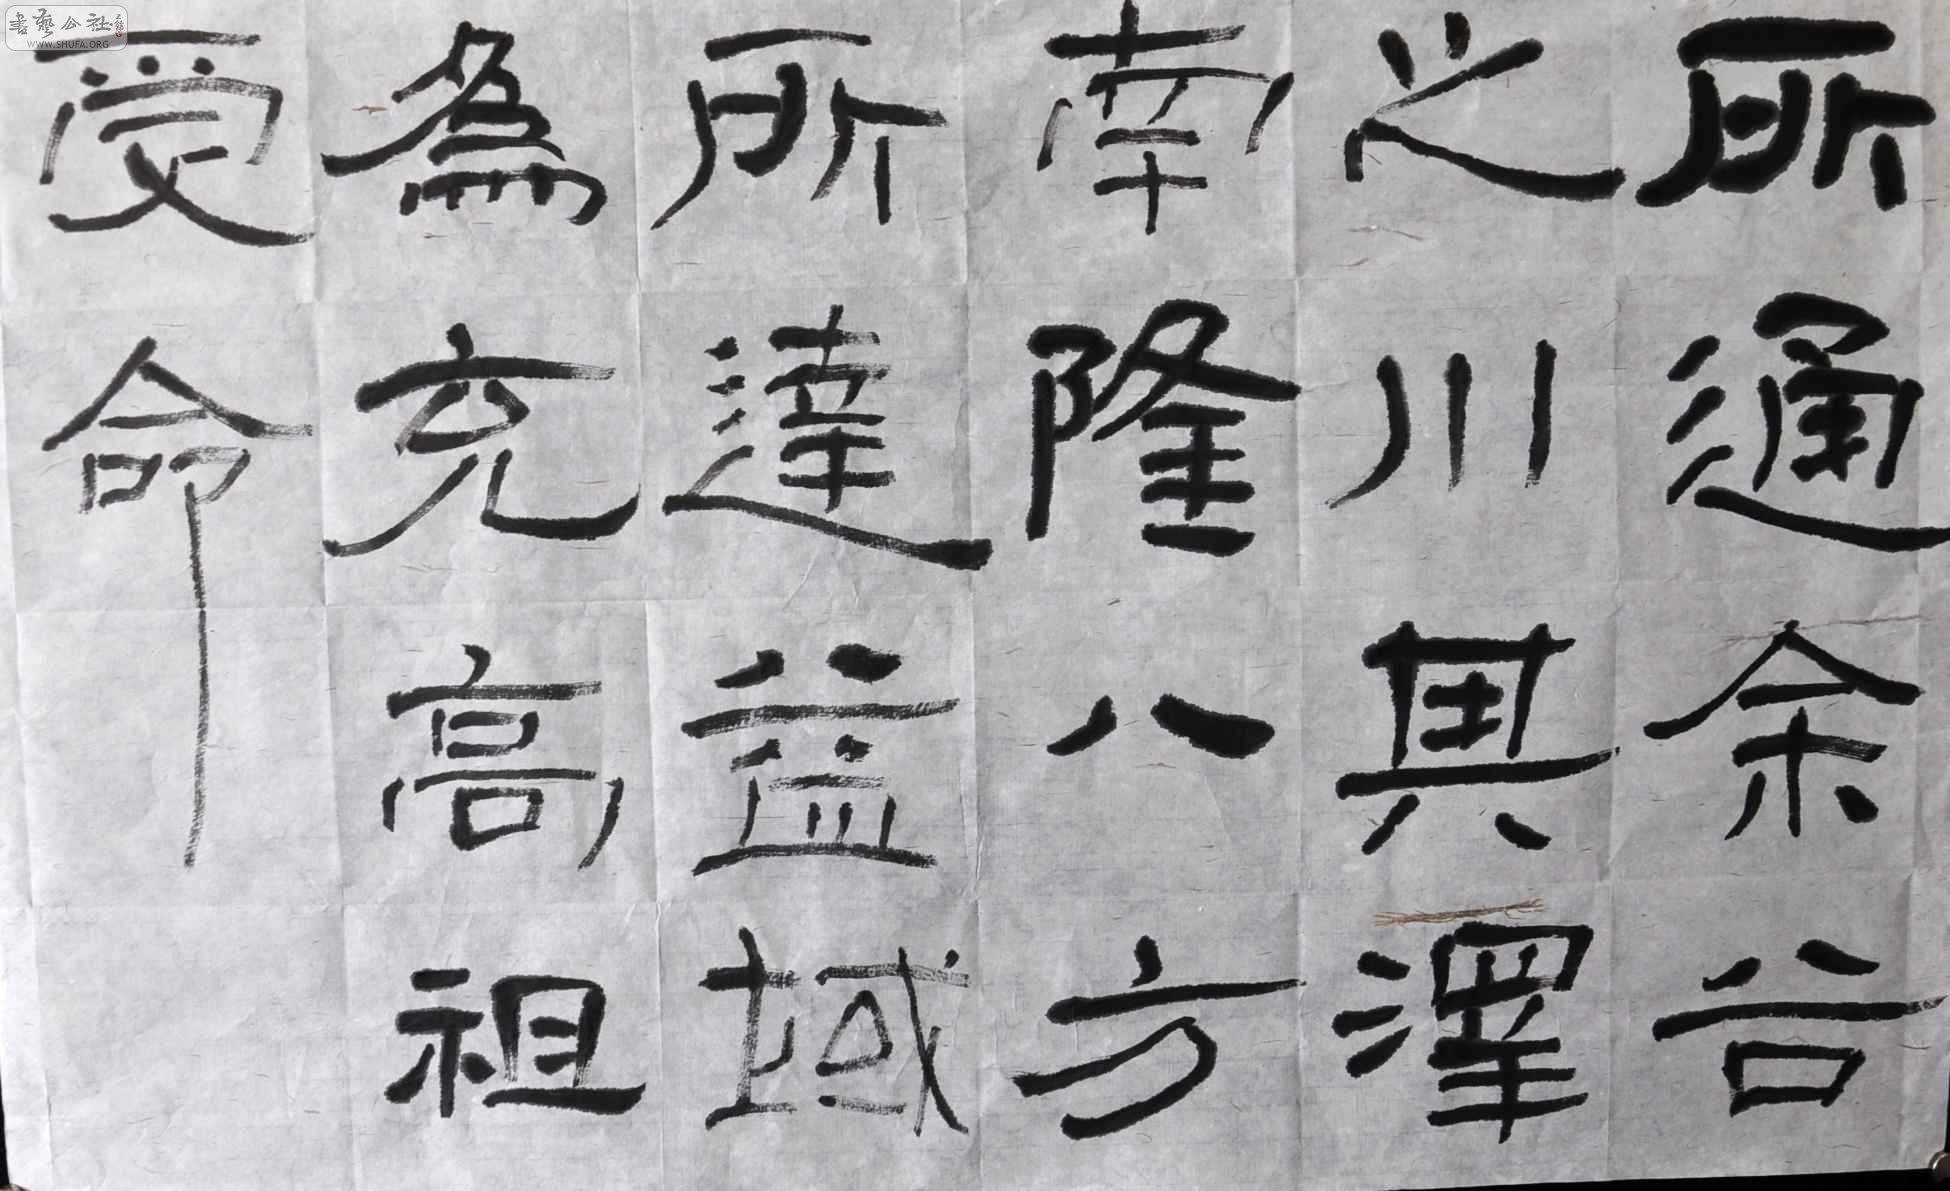 所通余谷
之川其澤
南隆八方
所達益域
為充高祖
受命
書藝公社
WWW.SHUFA.ORG